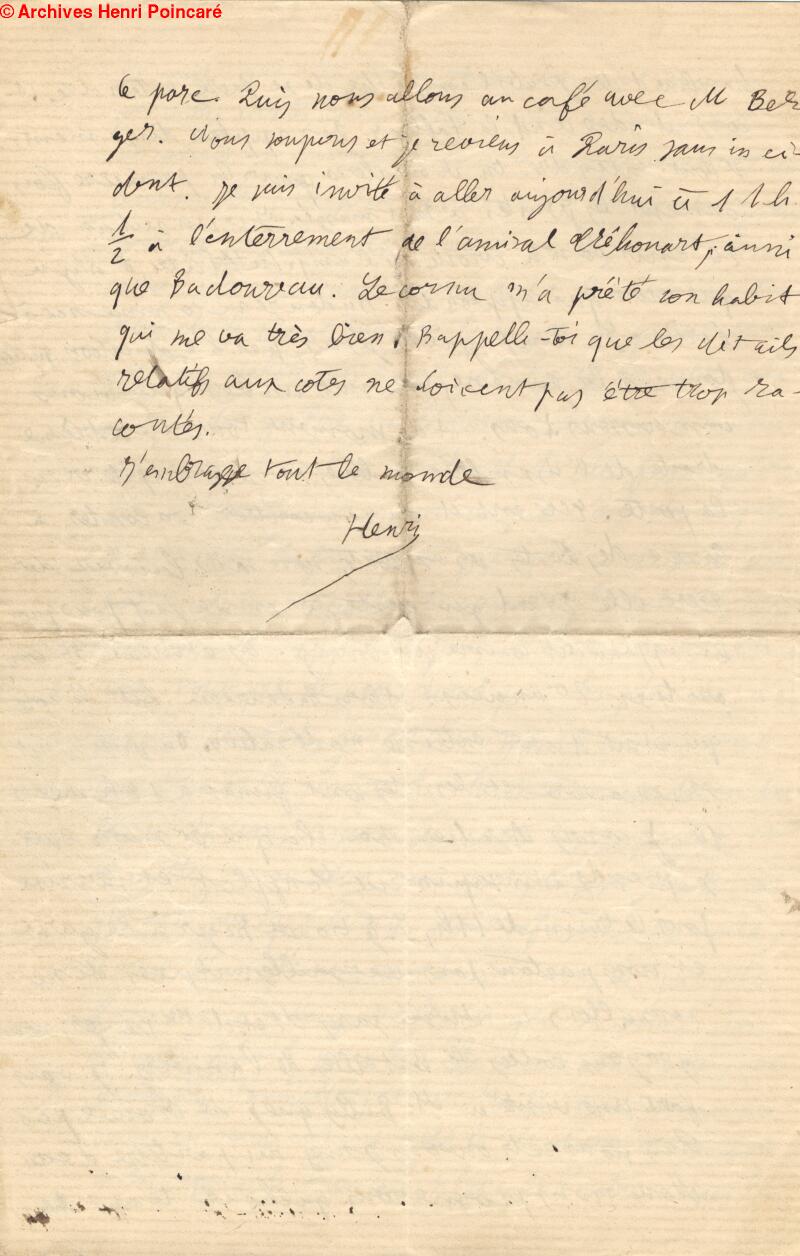 © Archives Henri Poincaré
le parc. Puis nous allons au café avec M Ber
ger. Nous soupons et je reviens à Paris sans inci-
dent. je suis invité à aller aujourd'hui à 11 h
1/2 à l'enterrement de l'amiral Tréhouart, ainsi
que Badoureau. Lecornu m'a prêté son habit
qui me va très bien. Rappelle-toi que les détails
relatifs aux cotes ne doivent pas être trop ra-
contés.
J'embrasse tout le monde
Henri